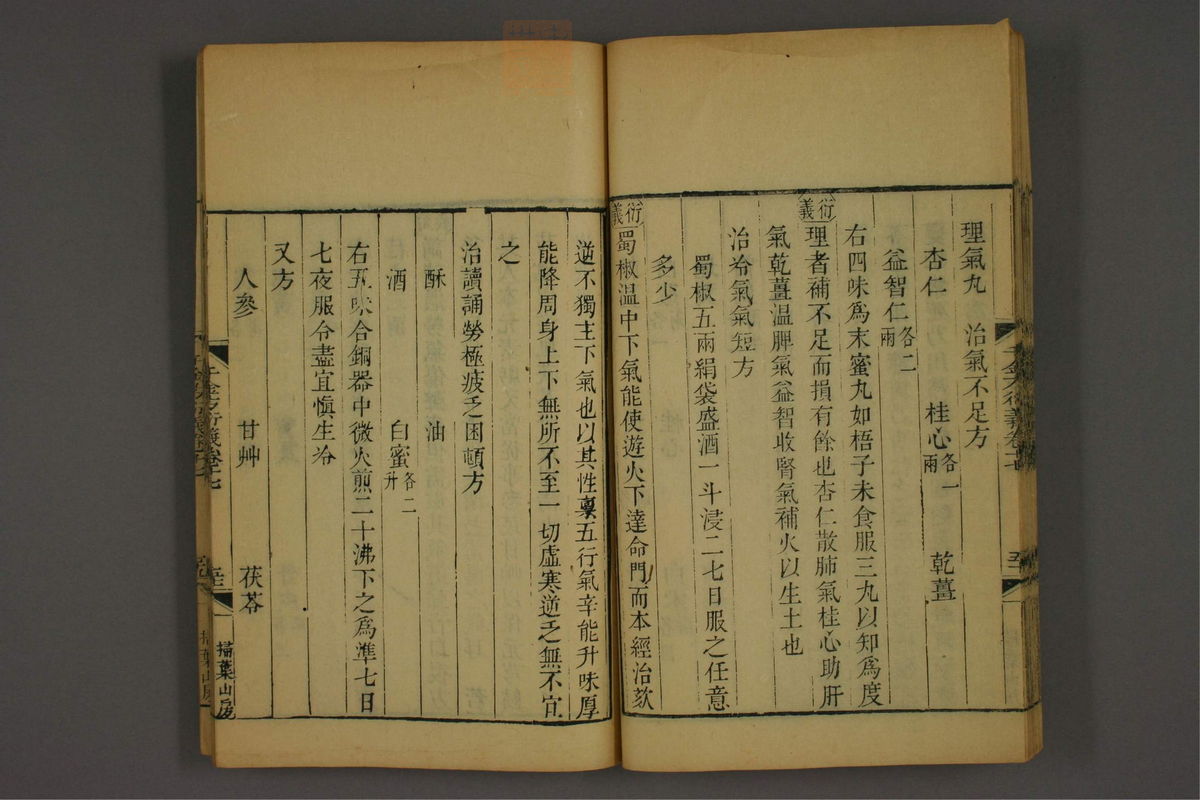 理氣丸　治氣不足方
杏仁　桂心各一兩　乾薑
益智仁各二兩
右四味爲末蜜丸如梧子未食服三丸以知爲度
衍義理者補不足而損有餘也杏仁散肺氣桂心助肝
氣乾薑温脾氣益智收腎氣補火以生土也
治冷氣氣短方
蜀椒五兩絹袋盛酒一斗浸二七日服之任意
多少
衍義蜀椒温中下氣能使遊火下達命門而本經治欬
逆不獨主下氣也以其性稟五行氣辛能升味厚
能降周身上下無所不至一切虛寒逆乏無不宜
之
治讀誦勞極疲乏困頓方
酥　油
酒　白蜜各二升
右五味合銅器中微火煎二十沸下之爲準七日
七夜服令盡宜愼生冷
又方
人參　甘艸　茯苓
千金方衍義卷十七
掃葉山房